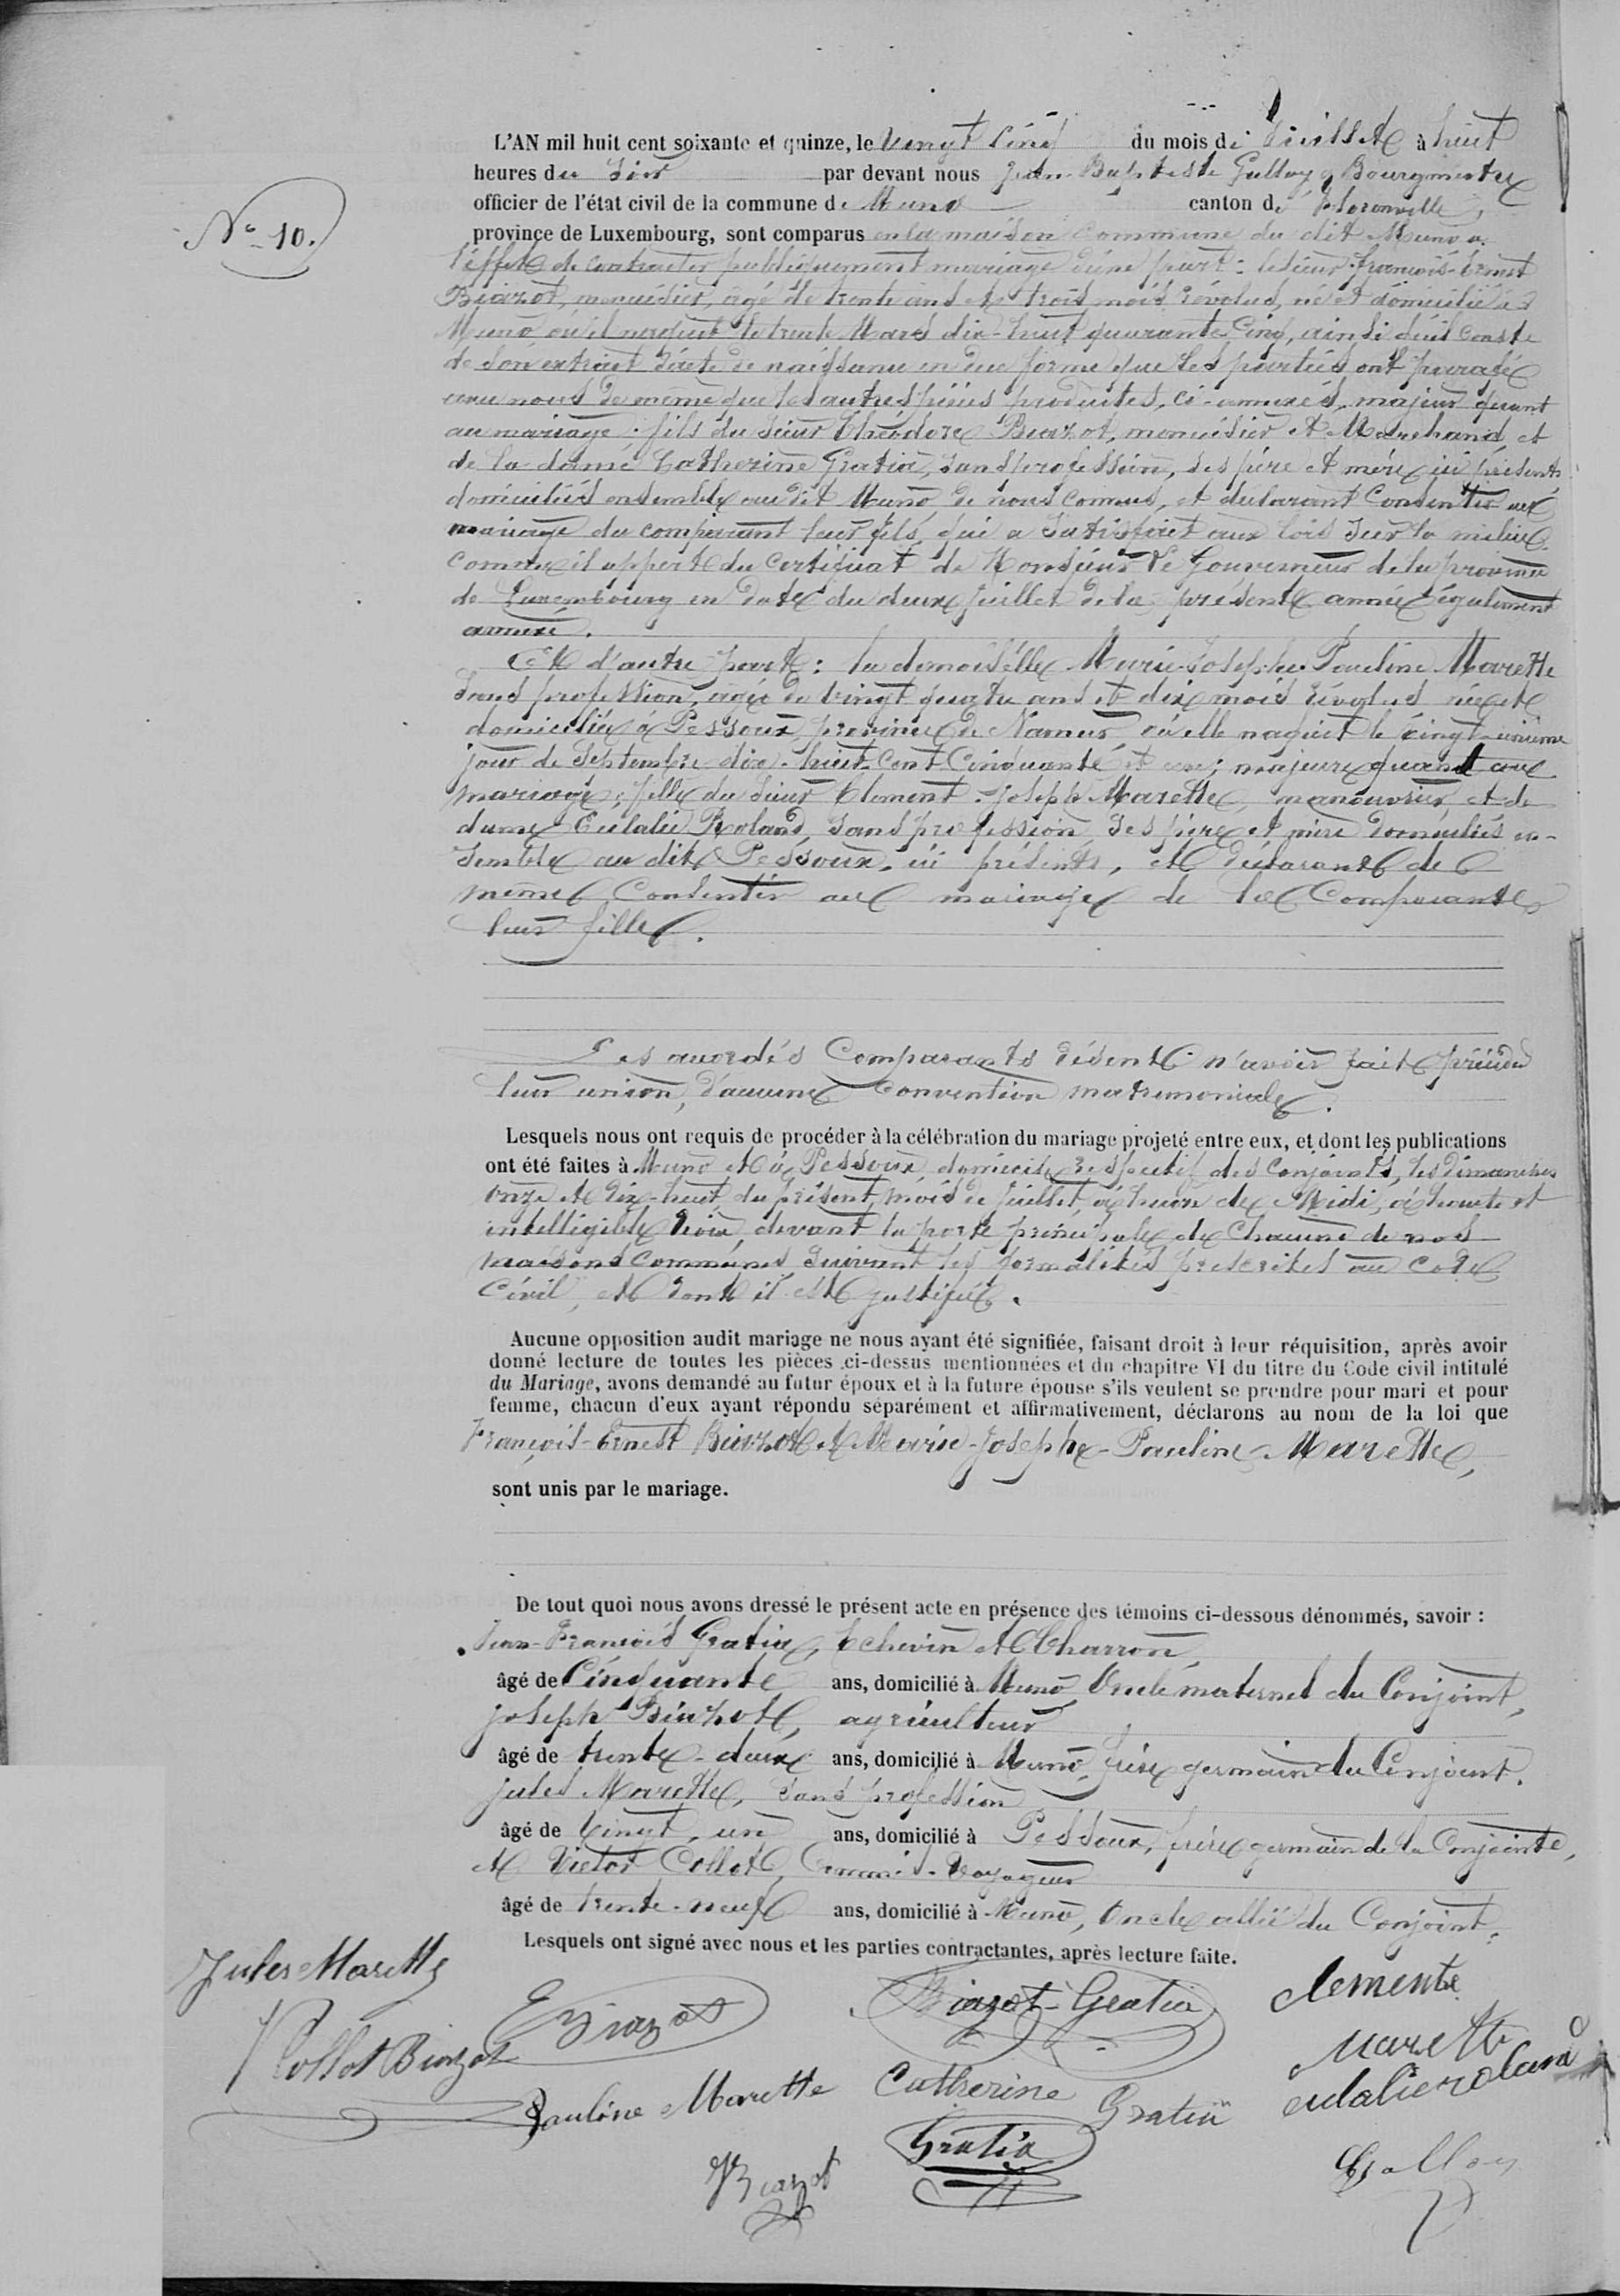 L'AN mil huit cent soixante et quinze, le vingt cinq du mois de Juillet à huit
heures du soir par devant nous Jean-Baptiste Galloy, Bourgmestre
officier de l'état civil de la commune de Muno canton de Florenville,
province de Luxembourg, sont comparus en la maison commune du dit Muno à
N° 10.
l'effet de contracter publiquement mariage d'une part: le sieur François-Ernest
Biazot, menuisier, âgé de trente ans et trois mois révolus, né et domicilié à
Muno où il naquit le trente Mars dix-huit quarante-cinq, ainsi qu'il conste
de son extrait d'acte de naissance en due forme que les parties ont paraphé
avec nous de même que les autres pièces produites, ci-annexés, majeur quant
au mariage; fils du sieur Théodore Biazot, menuisier et Marchand, et
de la dame Catherine Gratia, sans profession, ses père et mère ici présents
domiciliés ensemble au dit Muno, de nous connus, et déclarant consentir au
mariage du comparant leur fils, qui a satisfait aux lois sur la milice
comme il appert du certificat de Monsieur le Gouverneur de la province
de Luxembourg en date du deux juillet de la présente année également
annexé.
Et d'autre part: la demoiselle Marie-Josèphe-Pauline Marette
sans profession, âgée de vingt quatre ans et dix mois révolus née et
domiciliée à Pessoux, province de Namur, où elle naquit le vingt-unième
jour de Septembre dix-huit-cent-cinquante et un; majeure quant au
mariage; fille du sieur Clément-Joseph Marette, manouvrier, et de
dame Eulalie Roland, sans profession ses père et mère domiciliés en-
semble au dit Pessoux, ici présents, et déclarant de
même consentir au mariage de la Comparante
leur fille.
Les accordés Comparants disent n'avoir fait précéder
leur union, d'aucune convention matrimoniale.
Lesquels nous ont requis de procéder à la célébration du mariage projeté entre eux, et dont les publications
ont été faites à Muno et à Pessoux domicile respectif des conjoints, les dimanches
onze et dix-huit du présent mois de juillet, à heure de Midi, à haute et
intelligible voix, devant la porte principale de chacune de nos
maisons communes suivant les formalités prescrites au code
Civil, et dont il est justifié.
Aucune opposition audit mariage ne nous ayant été signifiée, faisant droit à leur réquisition, après avoir
donné lecture de toutes les pièces ci-dessus mentionnées et du chapitre VI du titre du Code civil intitulé
du Mariage, avons demandé au futur époux et à la future épouse s'ils veulent se prendre pour mari et pour
femme, chacun d'eux ayant répondu séparément et affirmativement, déclarons au nom de la loi que
François-Ernest Biazot et Marie-Josèphe-Pauline Marette,
sont unis par le mariage.
De tout quoi nous avons dressé le présent acte en présence des témoins ci-dessous dénommés, savoir :
Jean-François Gratia, Echevin et Charron,
âgé de Cinquante ans, domicilié à Muno, Oncle maternel du Conjoint,
Joseph Biazot, agriculteur
âgé de trente-deux ans, domicilié à Muno, frère germain du Conjoint.
Jules Marette, sans profession
âgé de vingt-un ans, domicilié à Pessoux, frère germain de la Conjointe,
et Victor Collot, Commis-Voyageur
âgé de trente-neuf ans, domicilié à Muno, Oncle allié du Conjoint.
Lesquels ont signé avec nous et les parties contractantes, après lecture faite.
Jules Marette
E Biazot
Biazot-Gratia
Clemente
Marette
V Collot Biazot
Pauline Marette
Catherine Gratia
eulalie roland
J Biazot
Gratia
Galloy